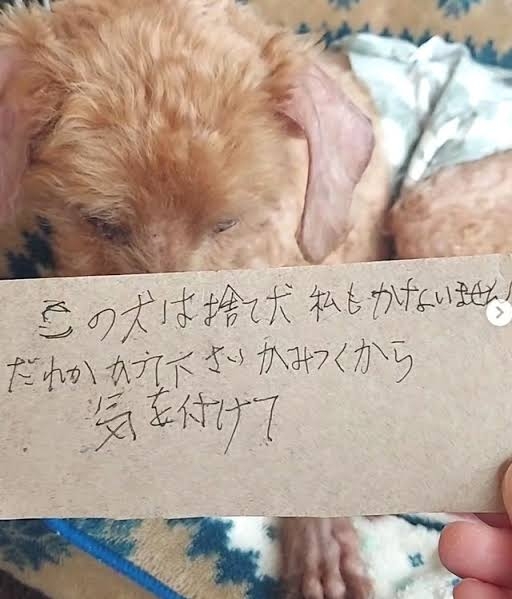 この犬は捨て犬 私もかけないません
だれかかって下さい かみつくから
気を付けて